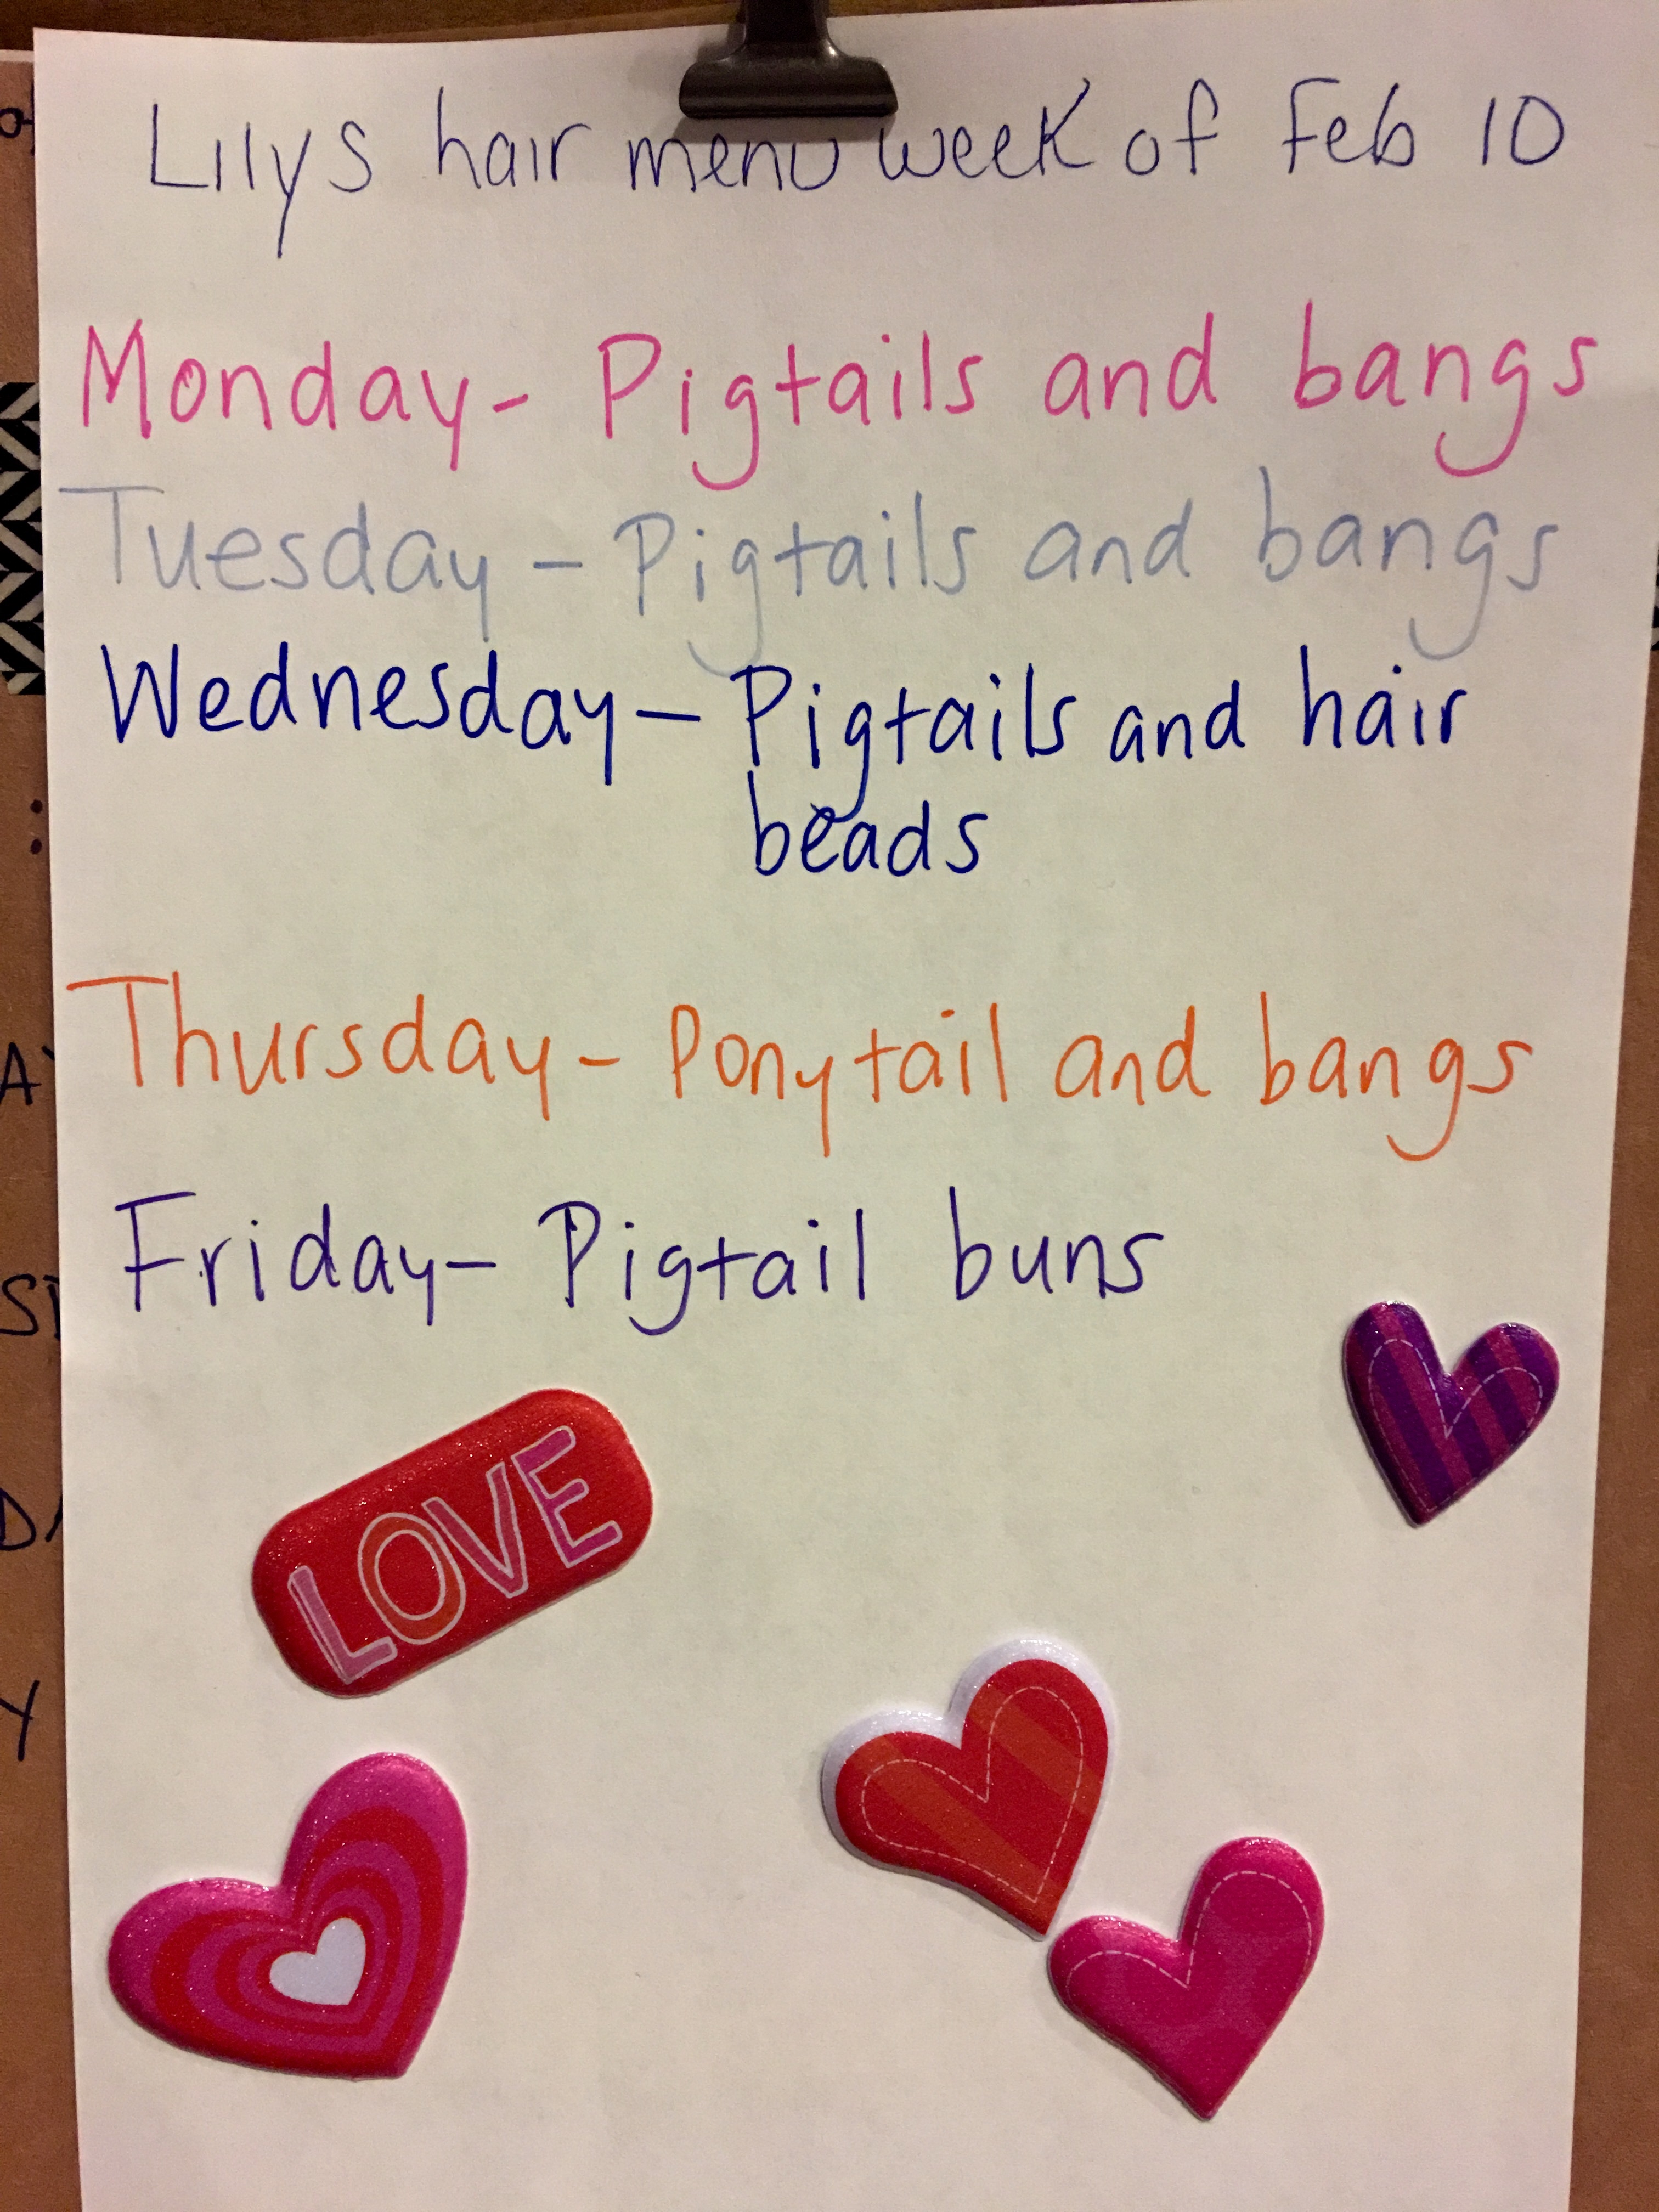 Lilys hair menu week of Feb 10
Monday- Pigtails and bangs
Tuesday - Pigtails and bangs
Wednesday - Pigtails and hair
beads
Thursday - Ponytail and bangs
Friday - Pigtail buns
LOVE